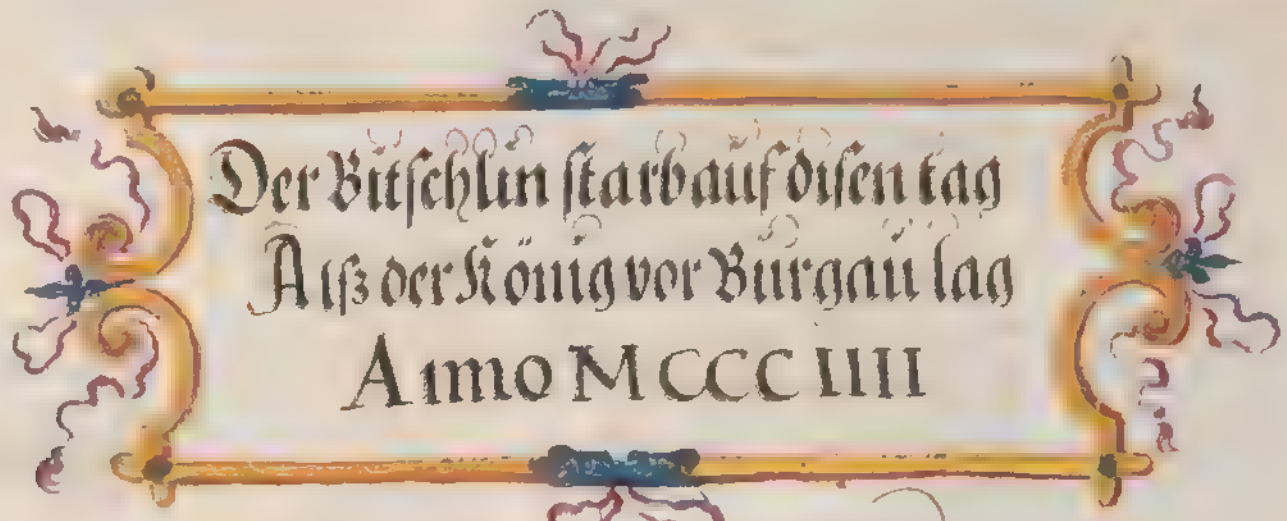 Der Bitschlin starb auf disen tag
Alß der König vor Burgau lag
Anno MCCCIIII